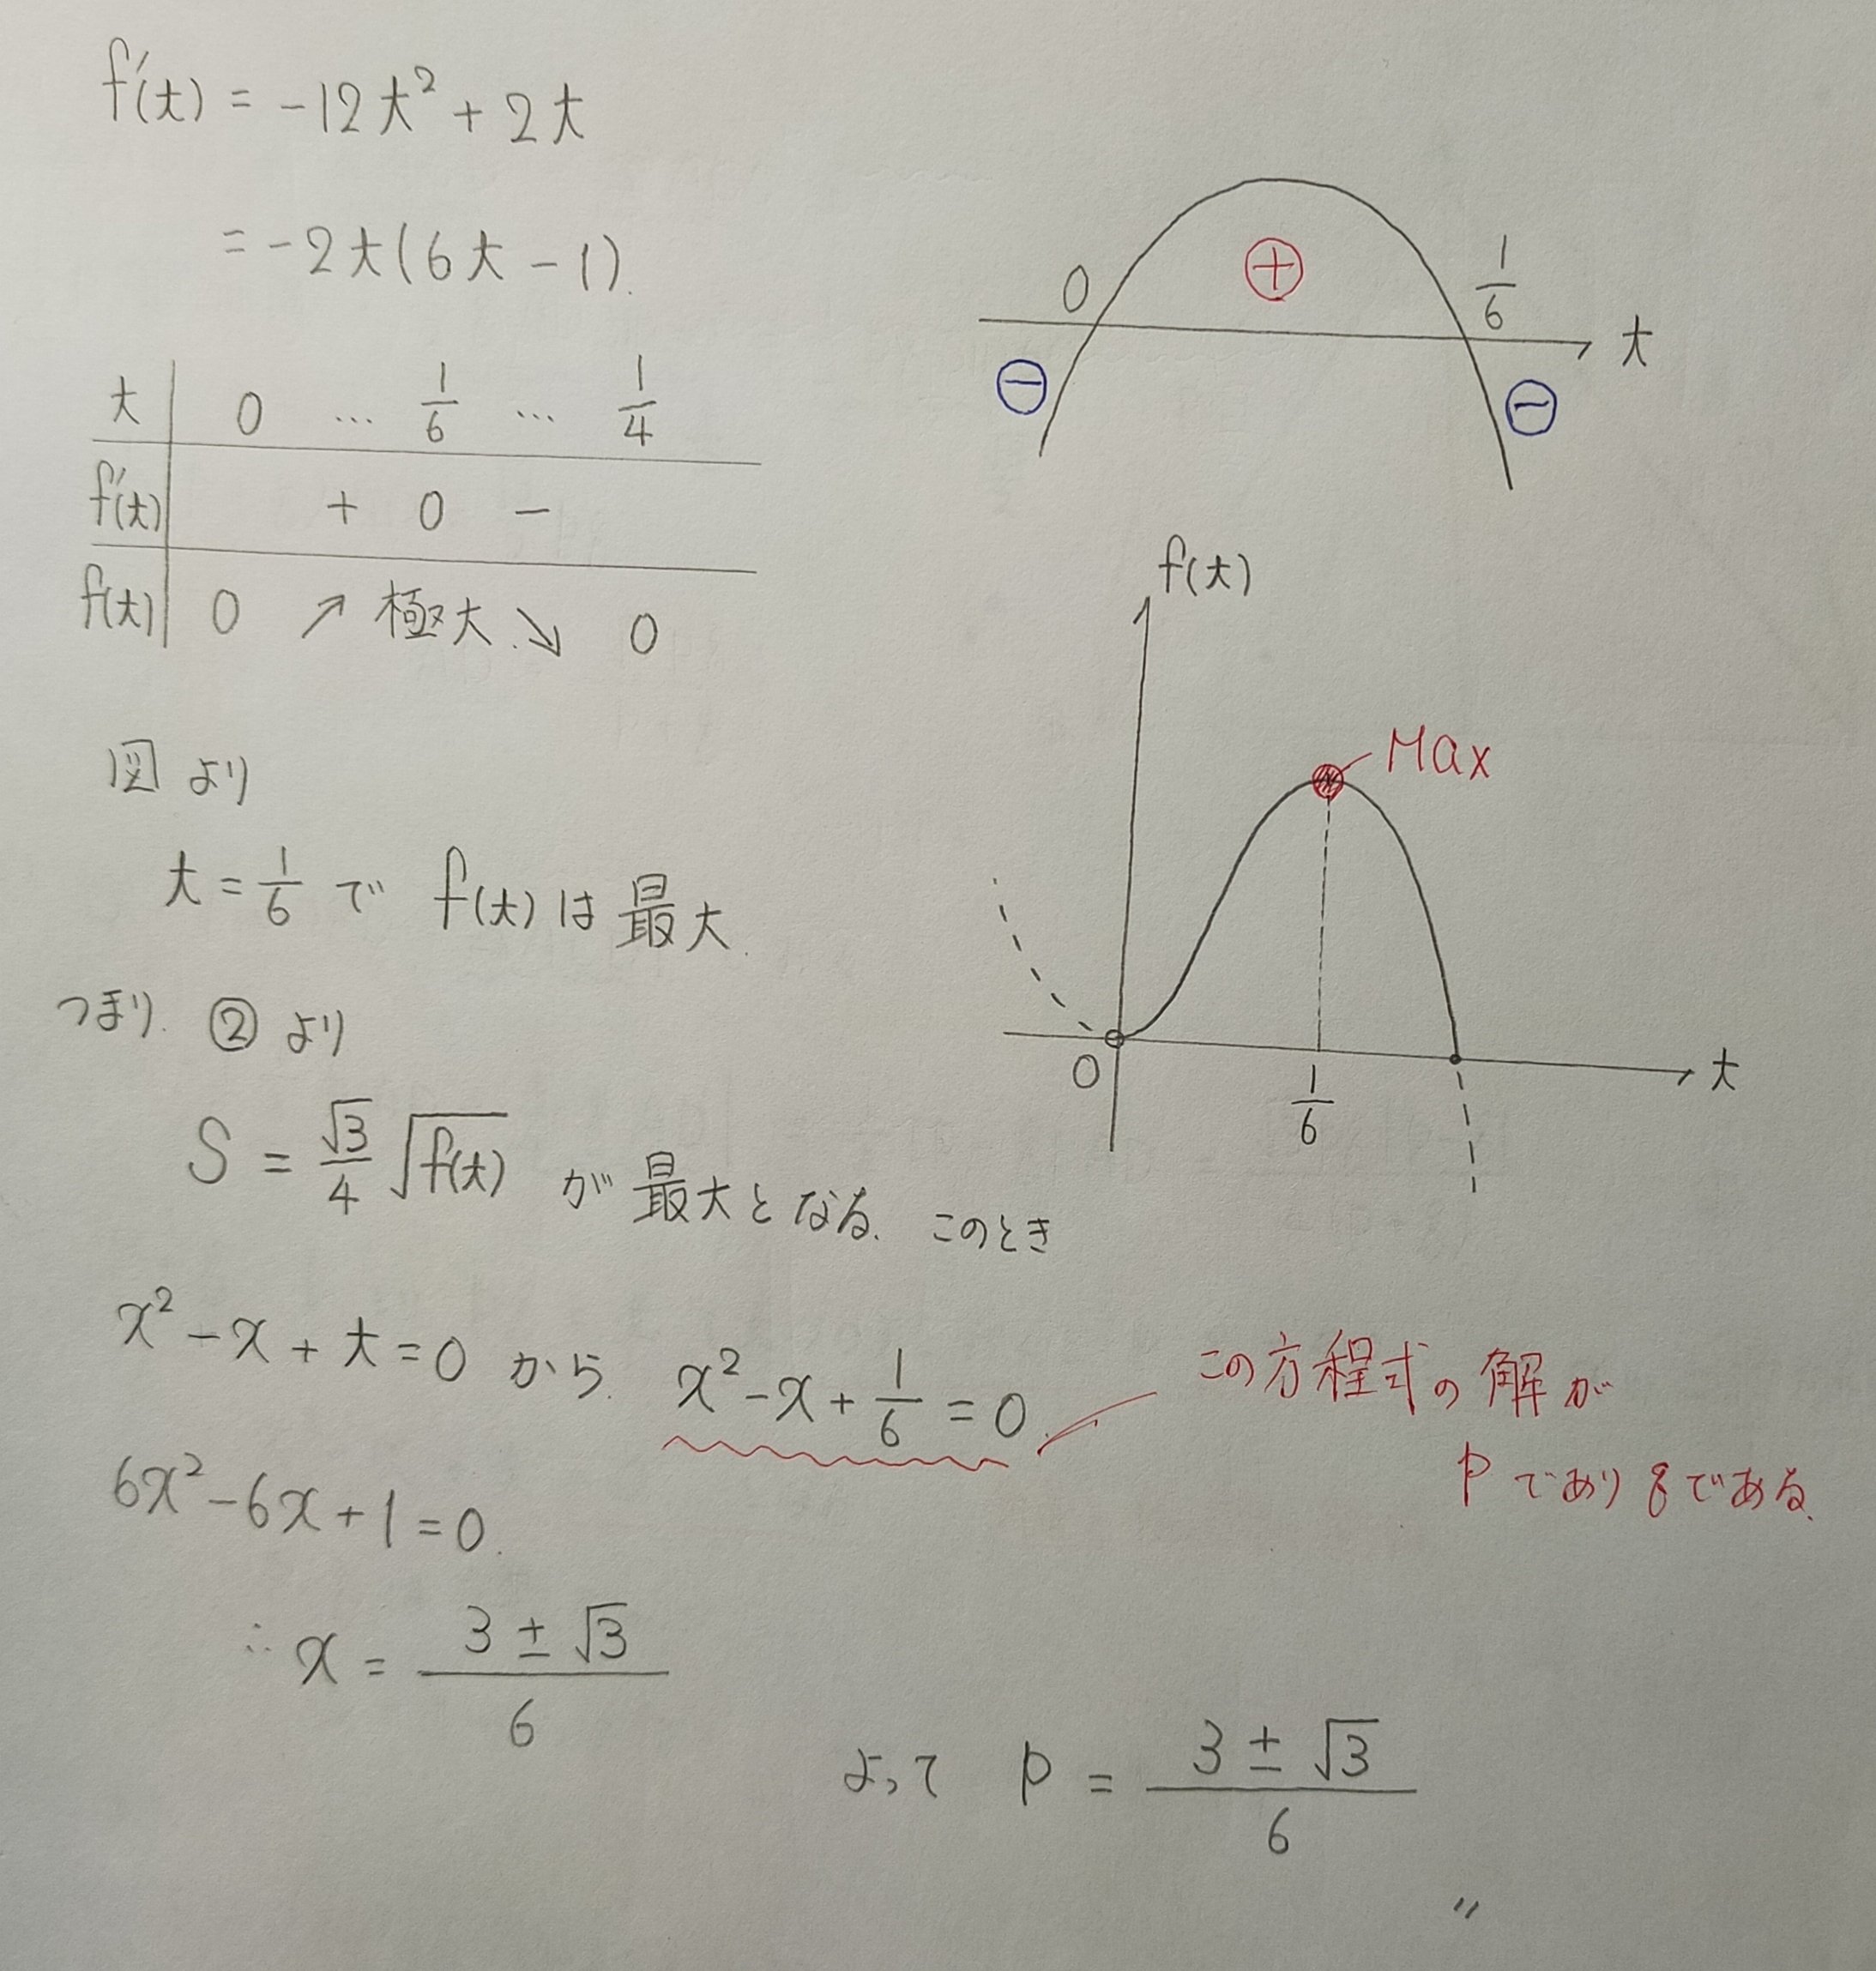 f'(t) = -12t² + 2t
= -2t(6t - 1).
0 ⊕ 1/6 t
⊖ ⊖
t | 0 … 1/6 … 1/4
f'(t) | + 0 -
f(t) | 0 ↗ 極大 ↘ 0
f(t)
Max
0 1/6 t
図より
t = 1/6 で f(t) は 最大.
つまり. ② より
S = √3/4 √f(t) が 最大となる. このとき
x² - x + t = 0 から. x² - x + 1/6 = 0.
この方程式の解が
pであり qである.
6x² - 6x + 1 = 0.
∴ x = (3 ± √3)/6
よって p = (3 ± √3)/6
〃